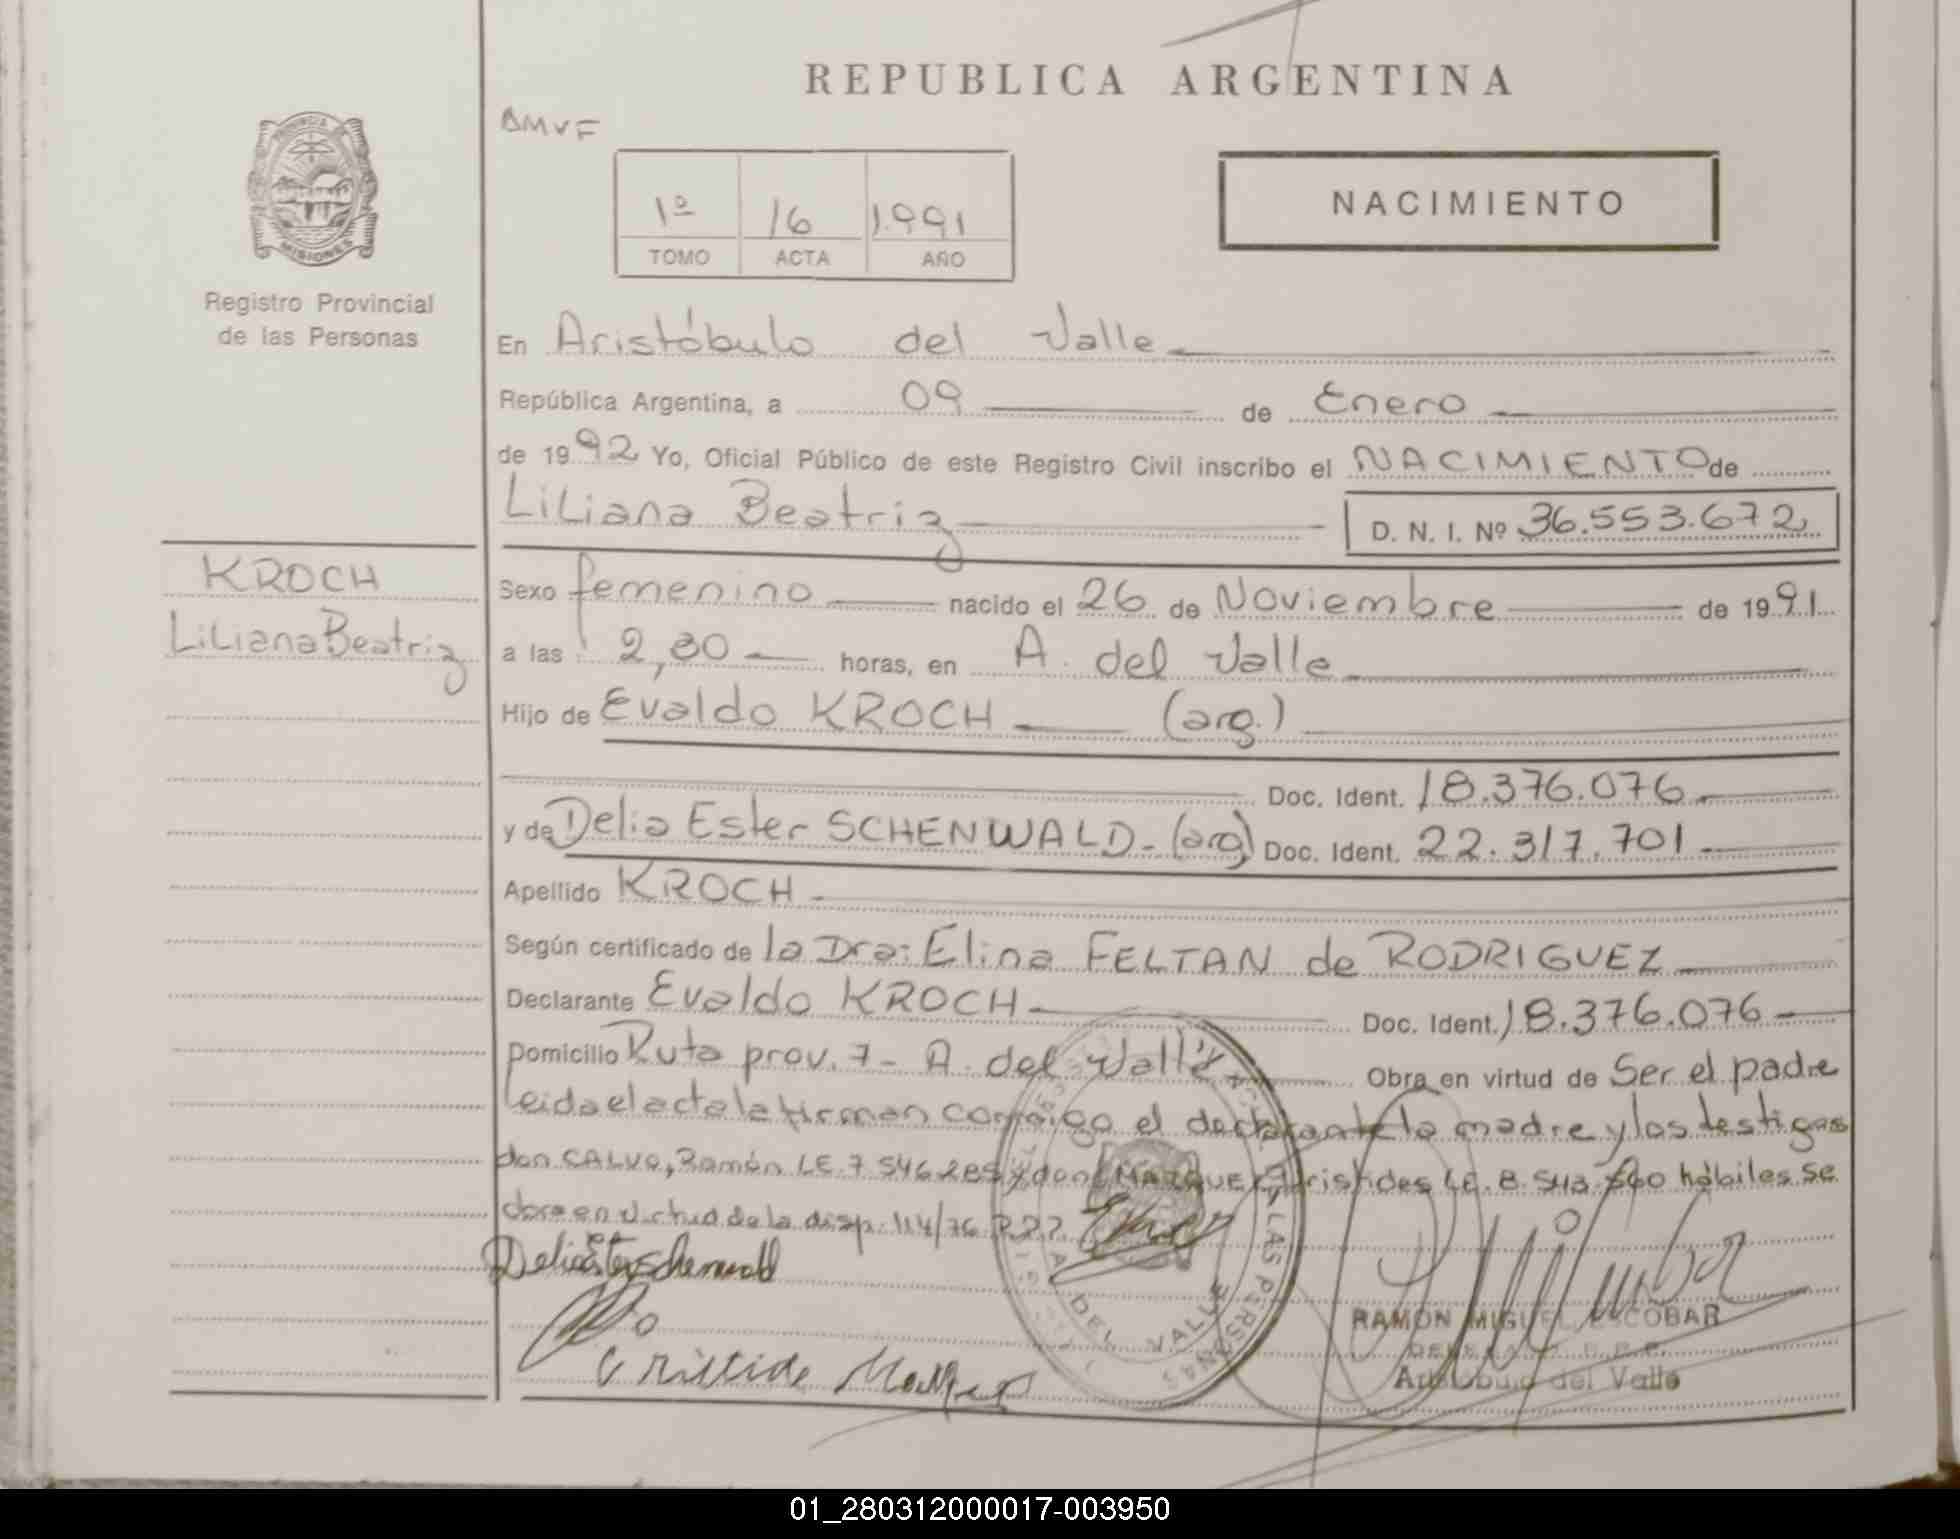 REPUBLICA ARGENTINA
PROVINCIA DE
MISIONES
Registro Provincial
de las Personas
BMVF
1º 16 1.991
TOMO ACTA AÑO
NACIMIENTO
En Aristóbulo del Valle
República Argentina, a 09 de Enero
de 1992 Yo, Oficial Público de este Registro Civil inscribo el NACIMIENTO de
LiLiana Beatriz D. N. I. Nº 36.553.672
KROCH
LiLiana Beatriz
Sexo femenino nacido el 26 de Noviembre de 1991
a las 2,30 horas, en A. del Valle
Hijo de Evaldo KROCH (arg.)
Doc. Ident. 18.376.076
y de Delia Ester SCHENWALD - (arg) Doc. Ident. 22.317.701
Apellido KROCH
Según certificado de la Dra: Elina FELTAN de RODRIGUEZ
Declarante Evaldo KROCH Doc. Ident. 18.376.076
Domicilio Ruta prov. 7 - A. del Valle Obra en virtud de Ser el padre
leida el acta la firman conmigo el declarante la madre y los testigos
don CALVO, Ramón LE. 7.546.285 y don Aristides LE. 8.543.560 hábiles se
en virtud de la disp. 114/76
Delia Ester Schenwald
DEL VALLE
LAS PERSONAS
RAMON MIGUEL ESCOBAR
Aristobulo del Valle
01_280312000017-003950